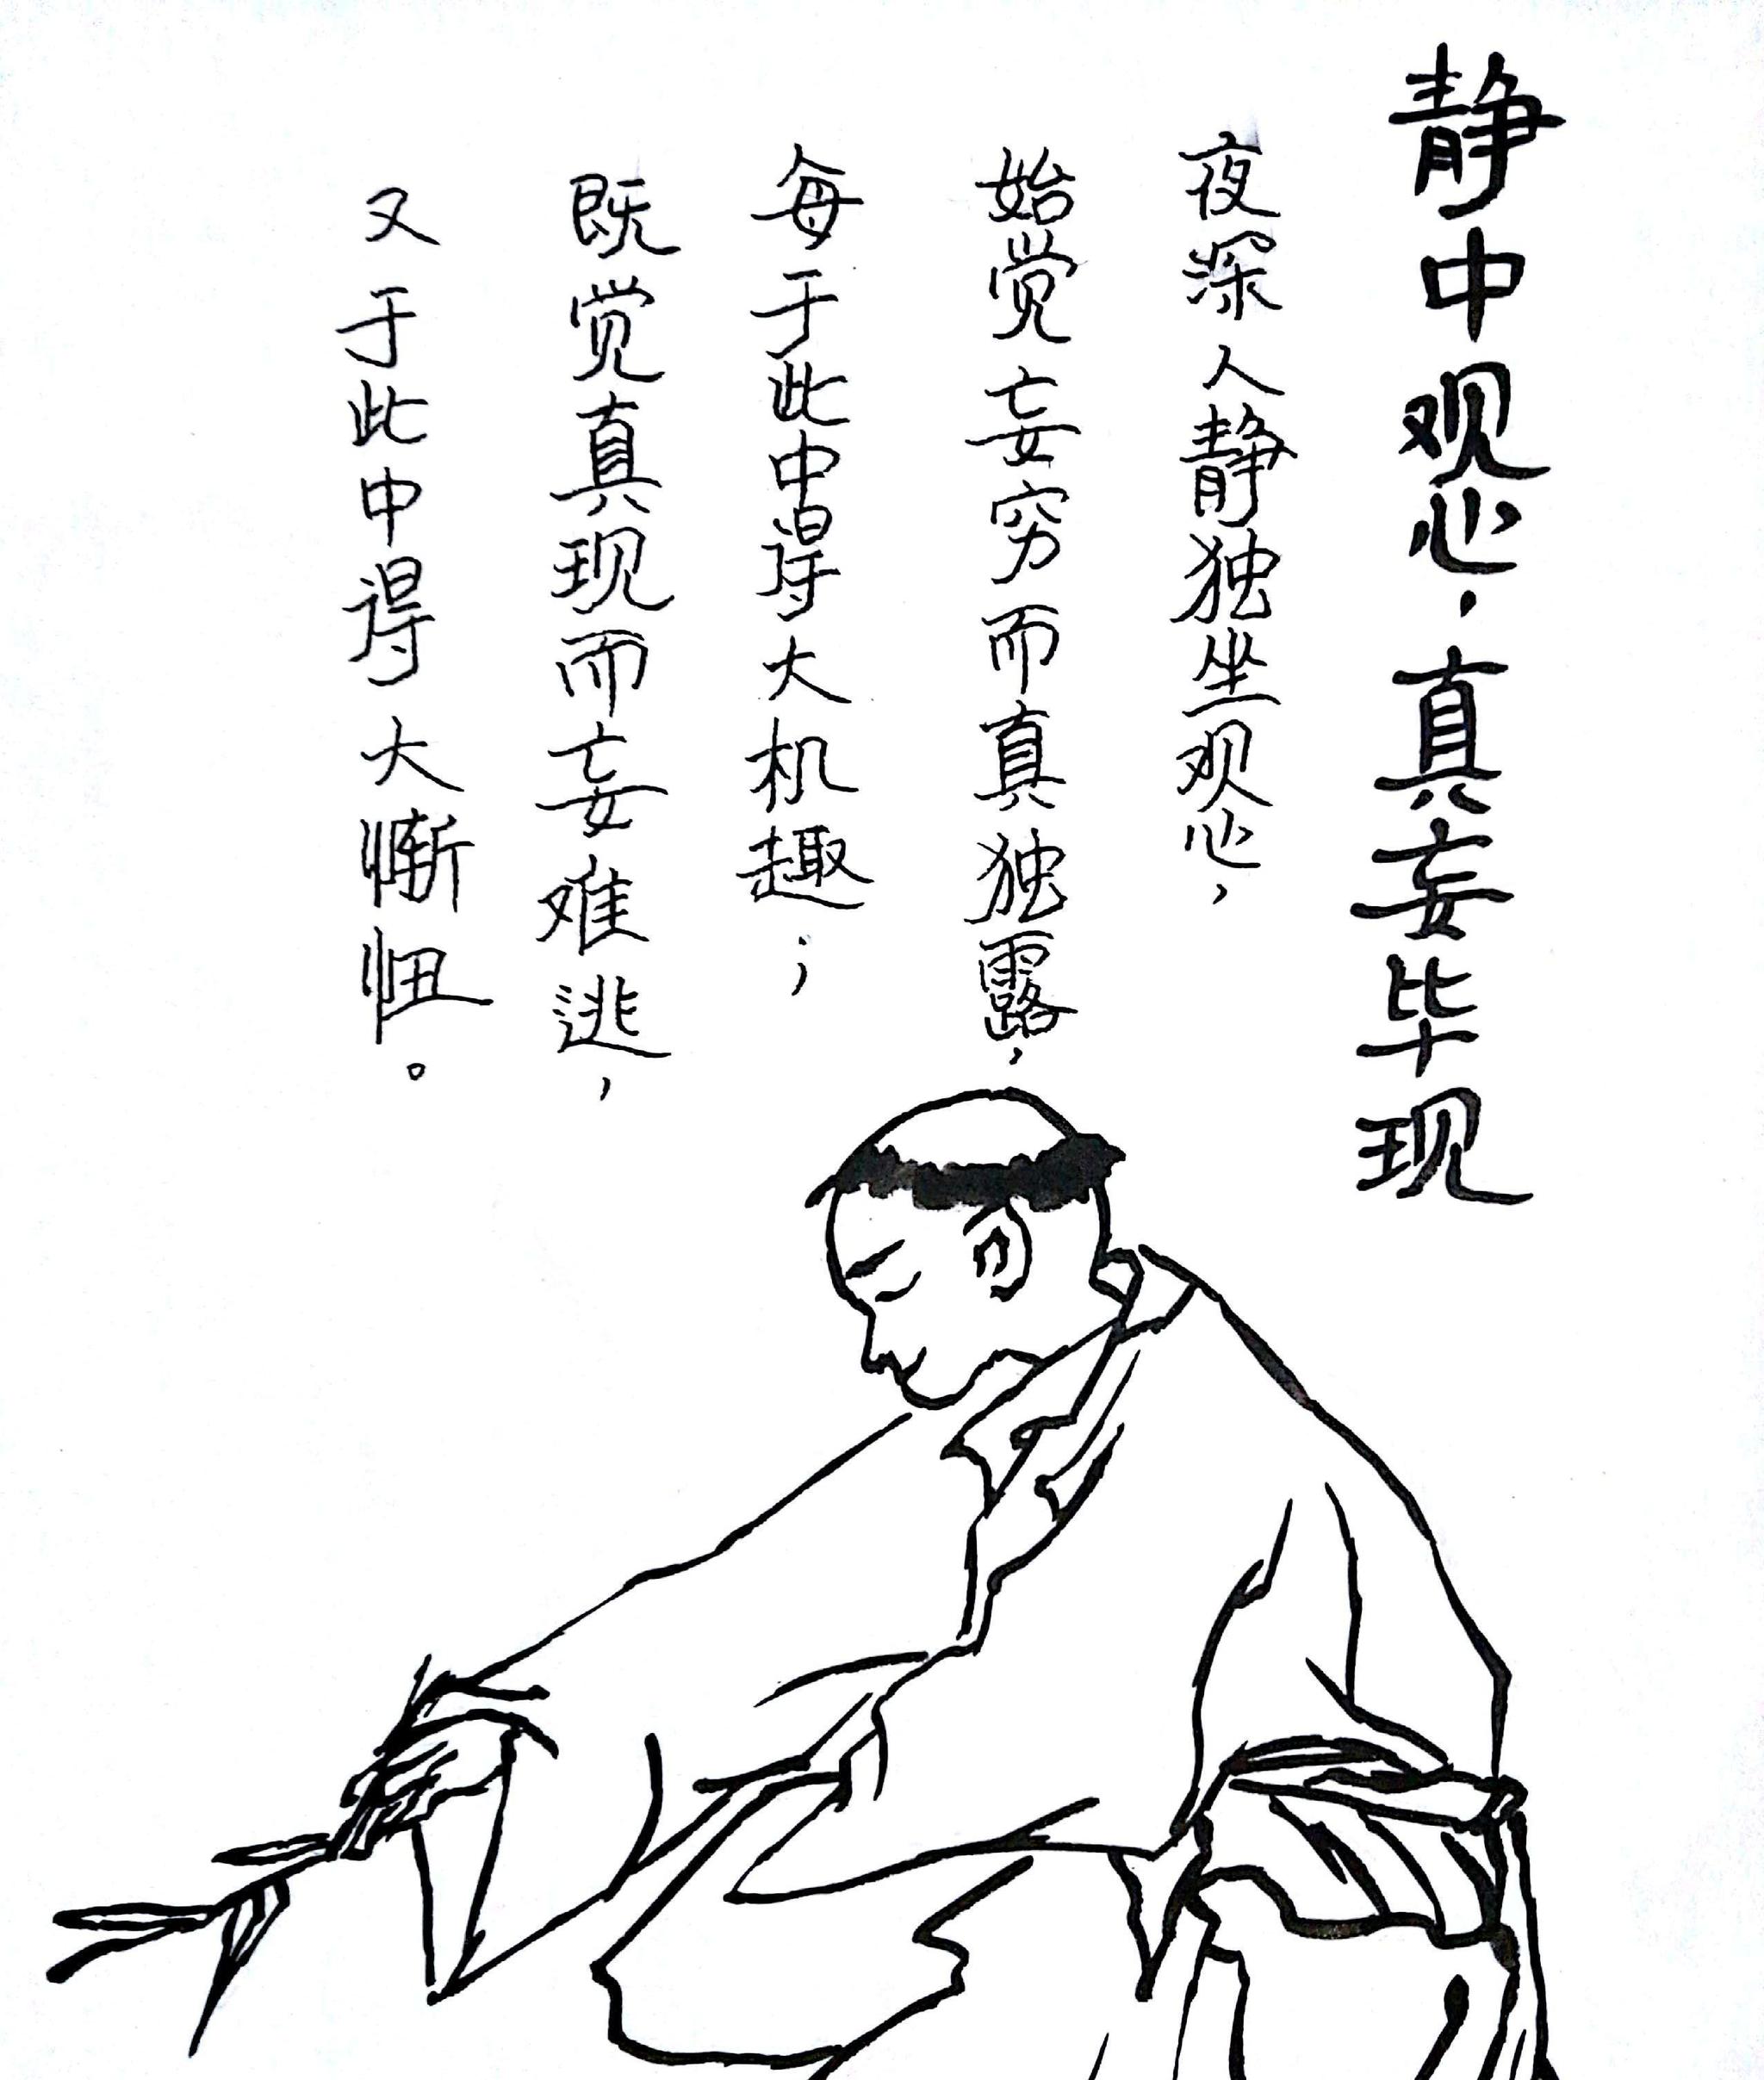 静中观心，真妄毕现
夜深人静独坐观心，
始觉妄穷而真独露，
每于此中得大机趣；
既觉真现而妄难逃，
又于此中得大惭忸。